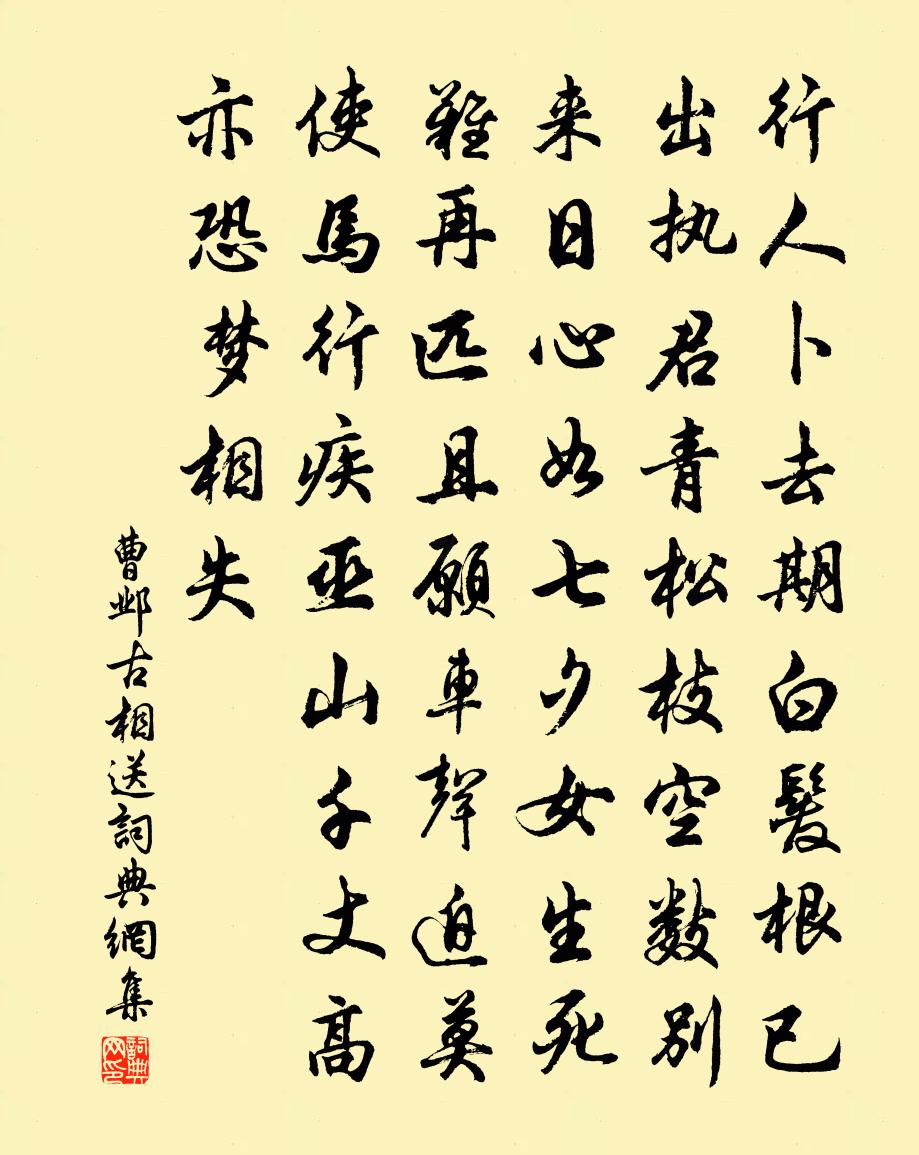 行人卜去期白髮根已
出执君青松枝空数别
来日心如七夕女生死
難再匹且願車聲迫莫
使馬行疾巫山千丈高
亦恐梦相失
曹邺古相送詞典網集
詞典网印